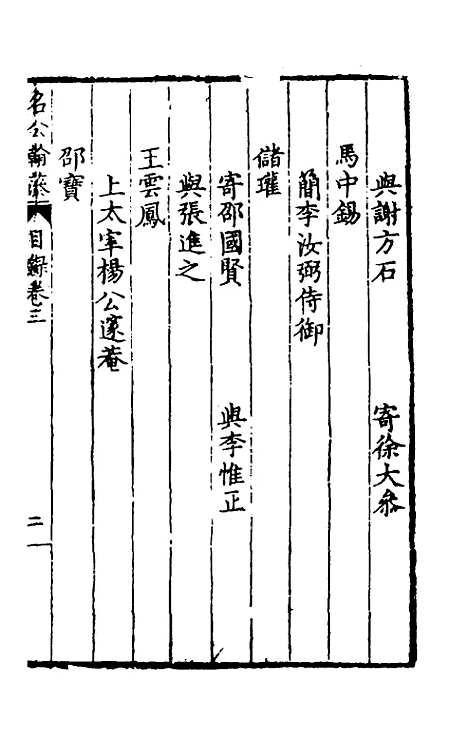 與謝方石 寄徐大參
馬中錫
簡李汝弼侍御
儲瓘
寄邵國賢 與李惟正
與張進之
王雲鳳
上太宰楊公邃菴
邵寶
名公翰藻 目錄卷三 二